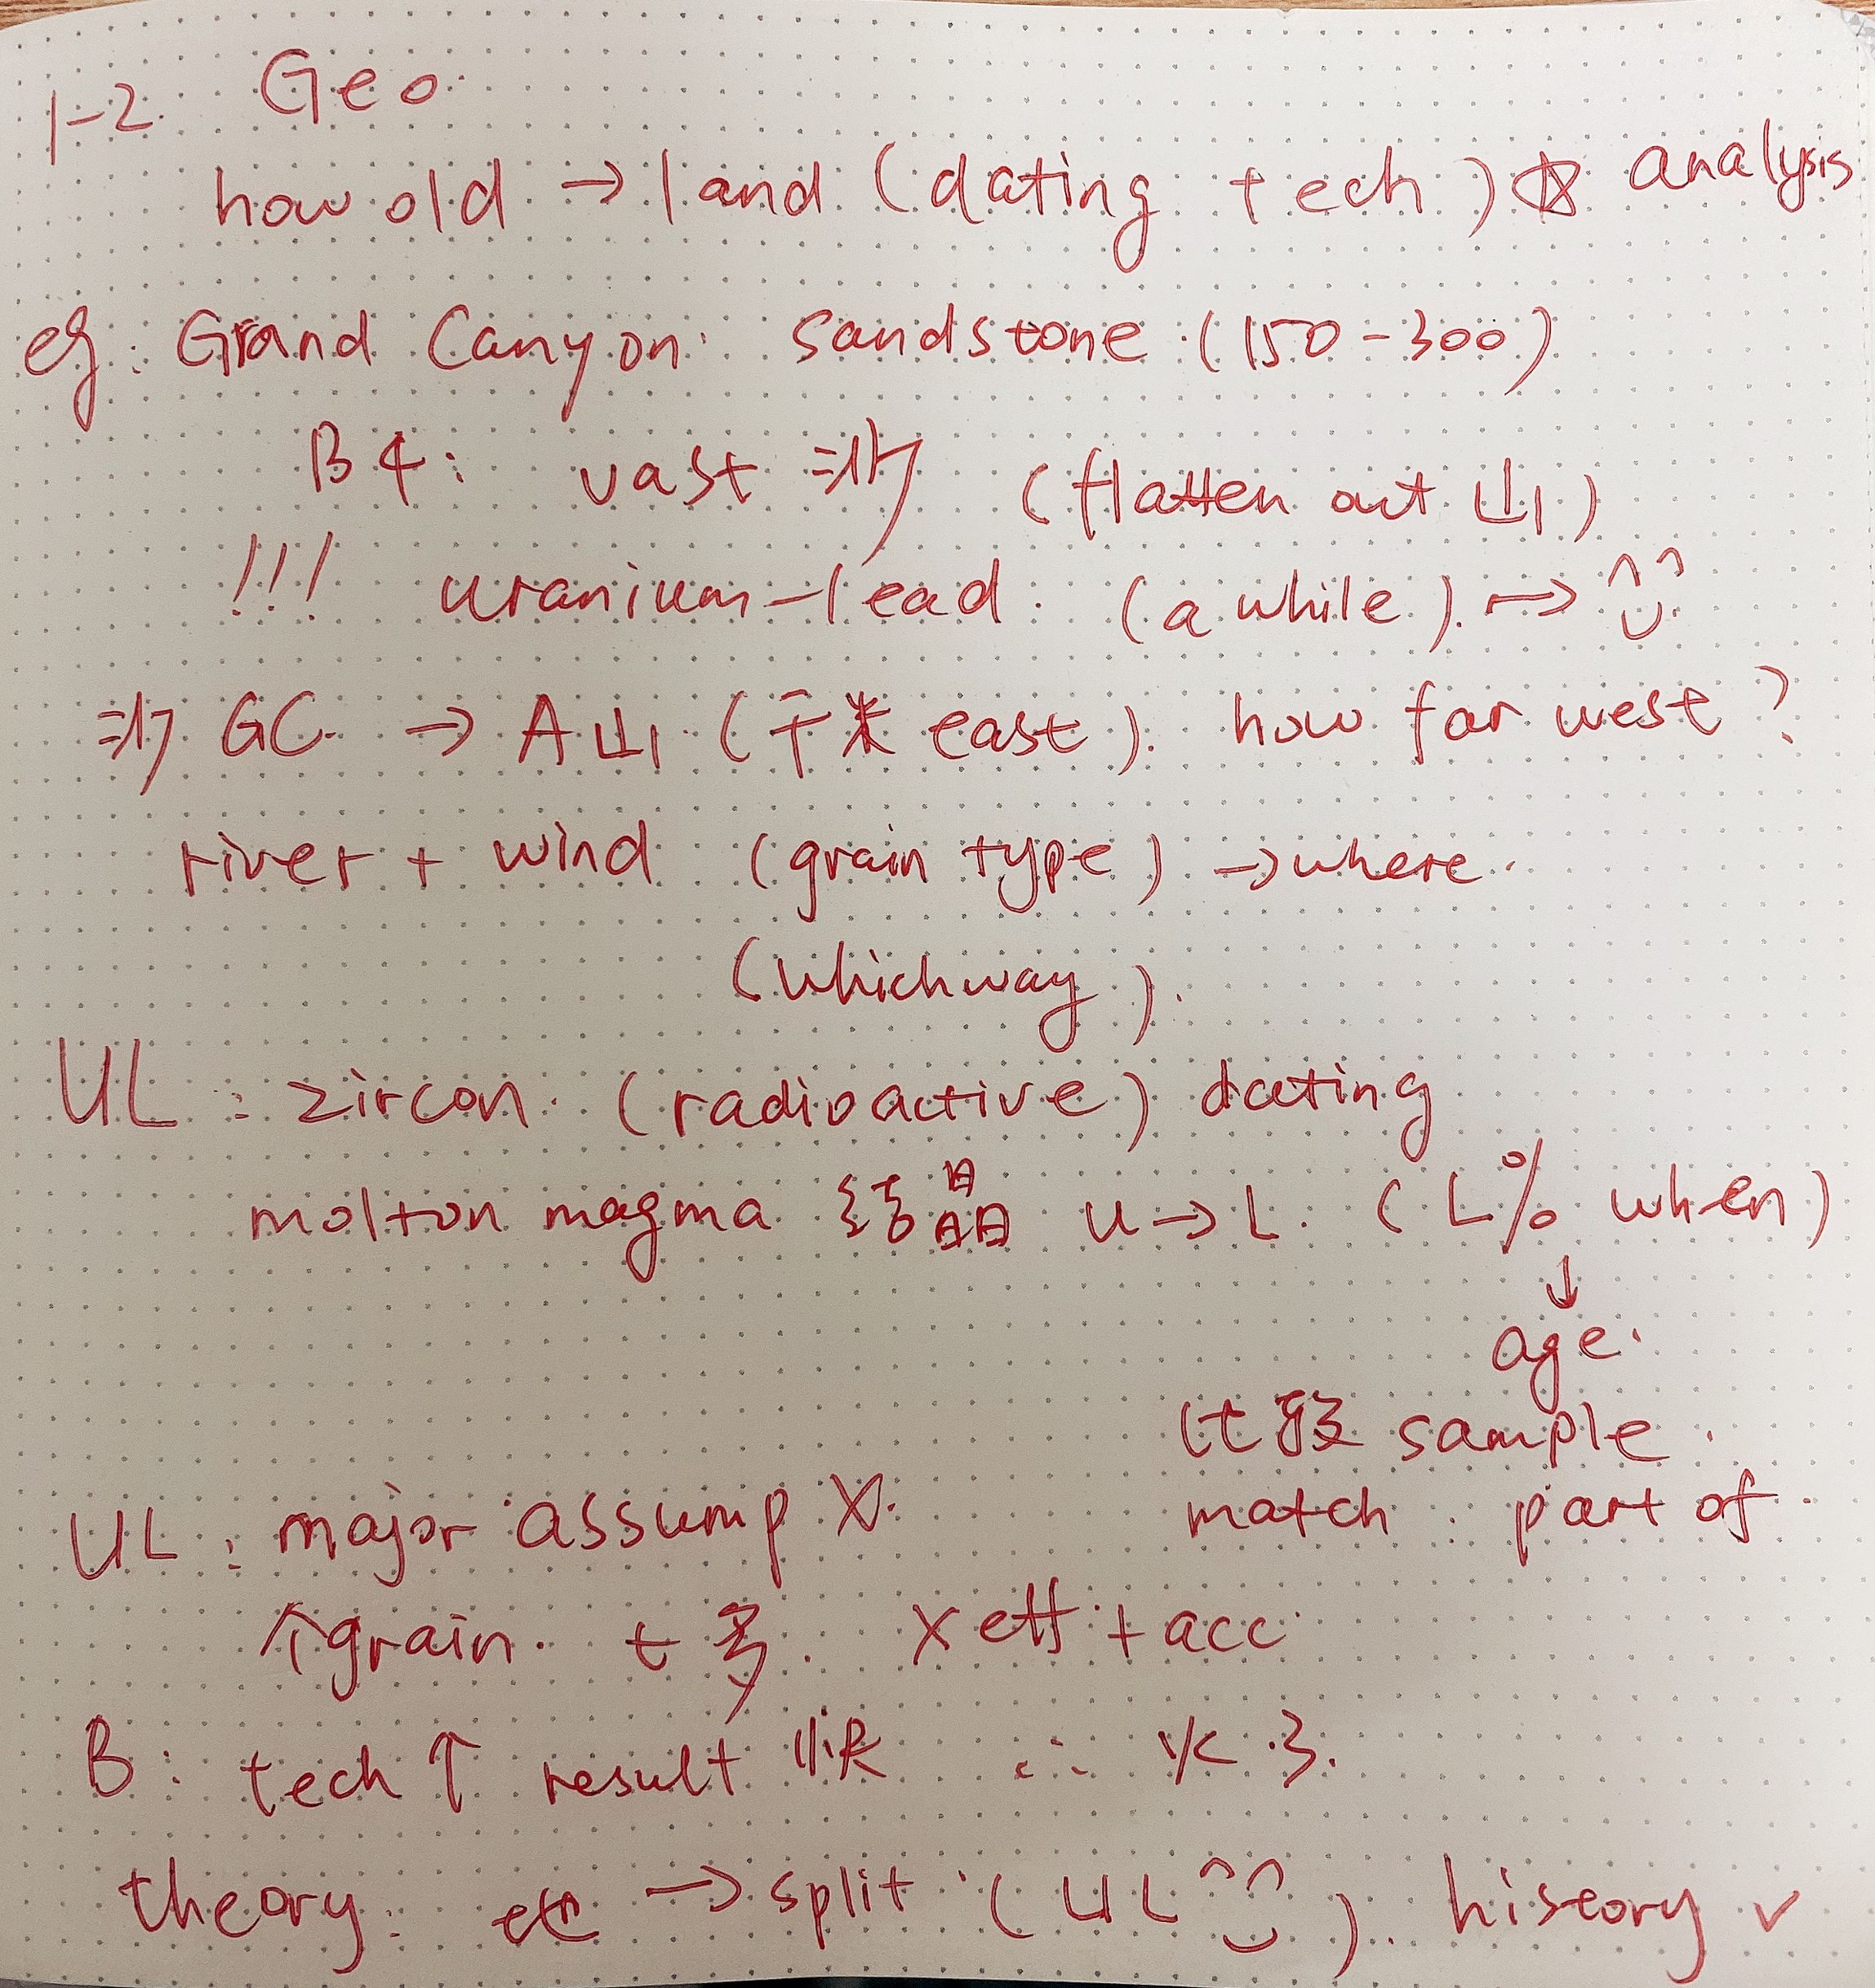 1-2. Geo
how old → land (dating tech) ☆ analysis
eg: Grand Canyon: sandstone (150-300)
B4: vast (flatten out 山)
!!! uranium-lead (a while) →
GC → A山 (千米 east) how far west?
river + wind (grain type) → where
(which way)
UL: zircon (radioactive) dating
molton magma 结晶 U → L (L% when)
↓
age
比较 sample
match: part of
UL: major assump X
个grain t多 X eff + acc
B: tech ↑ result ∴
theory: → split (UL) history ✓